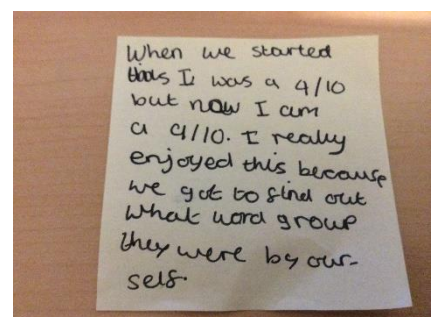 When we started
this I was a 4/10
but now I am
a 9/10. I really
enjoyed this because
we got to find out
what word group
they were by our-
self.